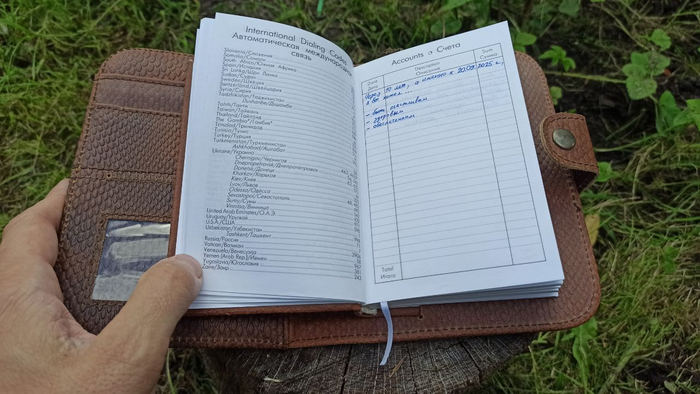 International Dialing Codes
Автоматическая международная
связь
Slovenia/Словения
Somalia/Сомали
South Africa/Южная Африка
Spain/Испания
Sri Lanka/Шри Ланка
Sudan/Судан
Sweden/Швеция
Switzerland/Швейцария
Syria/Сирия
Tadzhikistan/Таджикистан
Dushanbe/Душанбе
Taiwan/Тайвань
Thailand/Тайланд
The Gambia/Гамбия
Trinidad/Тринидад
Tunisia/Тунис
Turkey/Турция
Turkmenistan/Туркменистан
Ashkhabad/Ашхабад
Ukraine/Украина
Chernigov/Чернигов
Dnepropetrovsk/Днепропетровск
Donetsk/Донецк
Kharkov/Харьков
Kiev/Киев
Lvov/Львов
Odessa/Одесса
Sevastopol/Севастополь
Sumy/Сумы
Vinnitsa/Винница
United Arab Emirates/О.А.Э.
Uruguay/Уругвай
U.S.A./США
Uzbekistan/Узбекистан
Tashkent/Ташкент
Russia/Россия
Vatican/Ватикан
Venezuela/Венесуэла
Yemen (Arab Rep.)/Йемен
Yugoslavia/Югославия 381
Zaire/Заир 243
Accounts э Счета
Date
Дата
Description
Описание
Sum
Сумма
Через 10 лет, а именно к 20.09.2025 г.
я бы хотел ...
- быть счастливым
- здоровым
- обеспеченным
Total
Итого